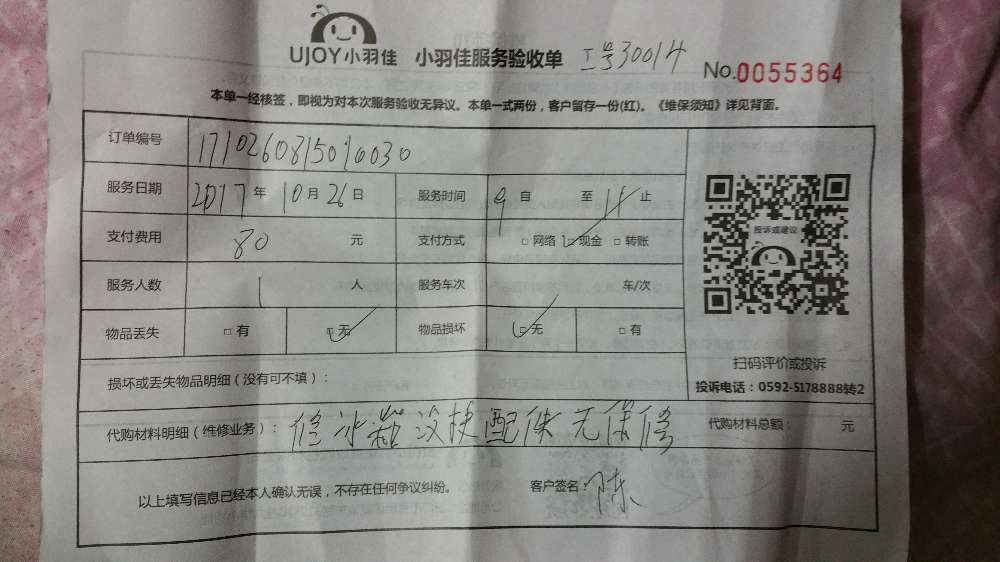 UJOY小羽佳 小羽佳服务验收单 工号30014
No.0055364
本单一经核签，即视为对本次服务验收无异议。本单一式两份，客户留存一份(红)。《维保须知》详见背面。
订单编号 1710260815010030
服务日期 2017年10月26日 服务时间 9自 至11止
支付费用 80 元 支付方式 □网络 □现金 □转账
服务人数 1 人 服务车次 车/次
物品丢失 □有 □无 物品损坏 □无 □有
投诉或建议
扫码评价或投诉
投诉电话：0592-5178888转2
损坏或丢失物品明细（没有可不填）：
代购材料明细（维修业务）：修冰箱没换配件无保修 代购材料总额： 元
以上填写信息已经本人确认无误，不存在任何争议纠纷。 客户签名：陈